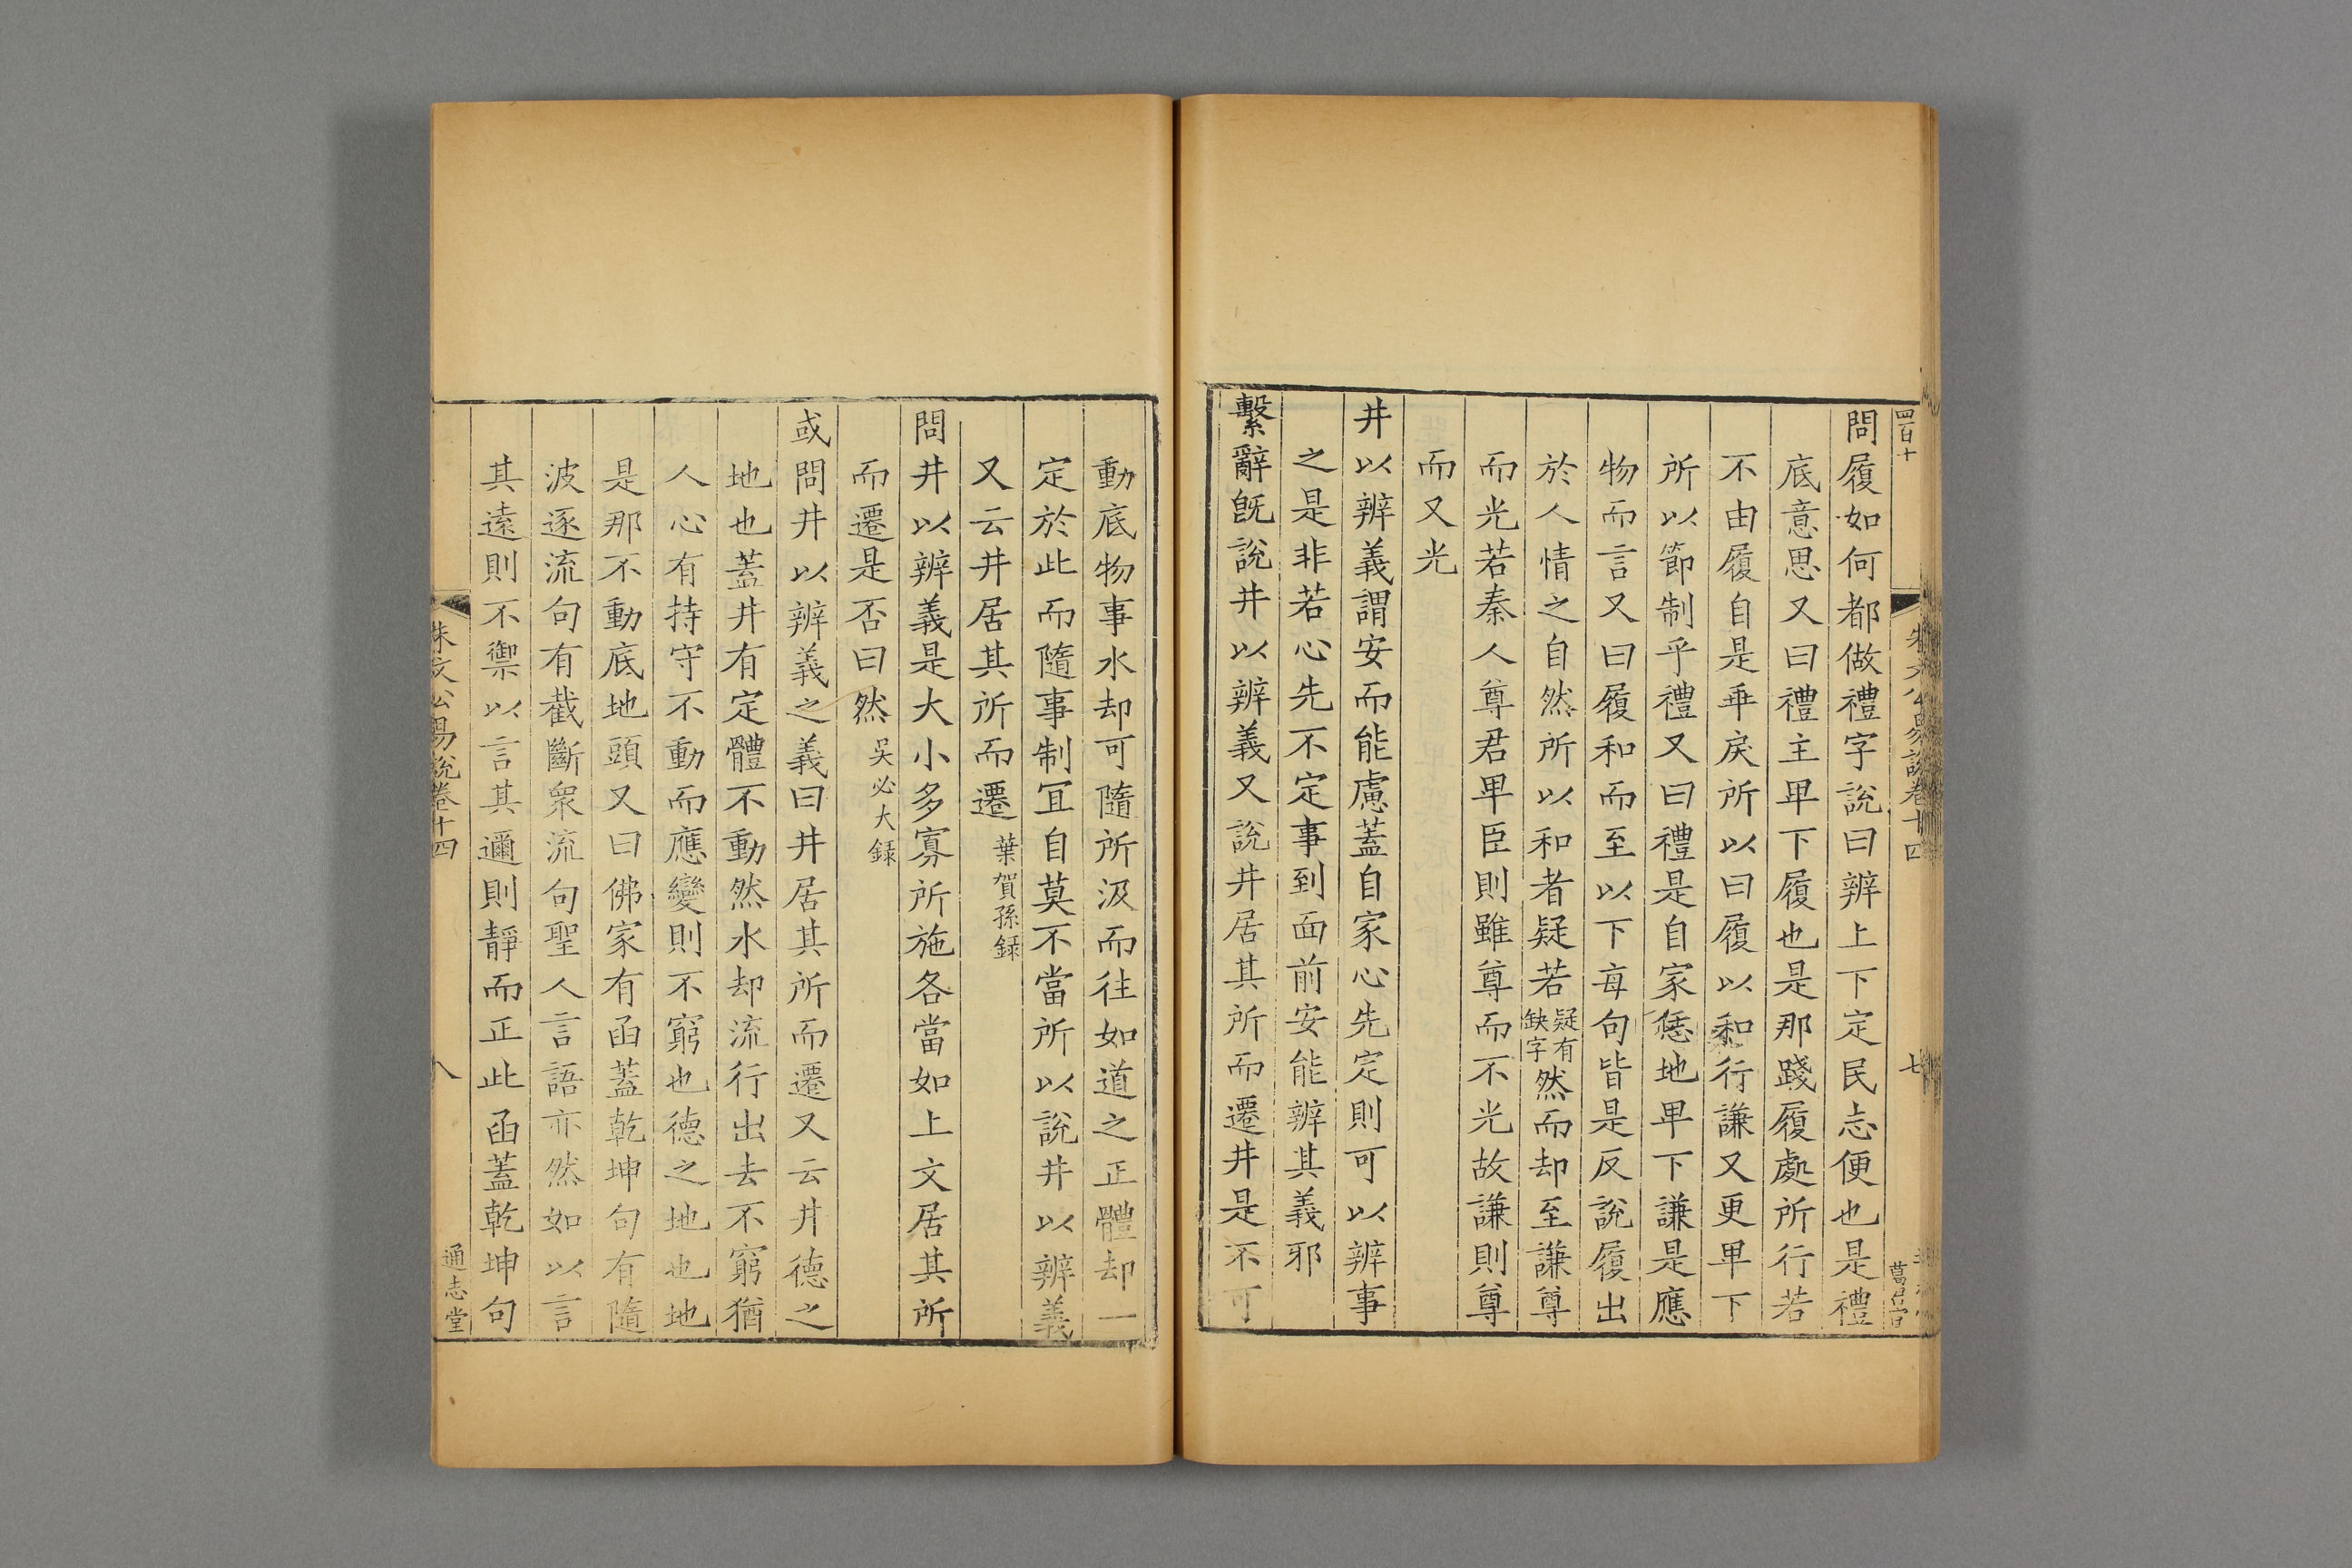 四百十
朱文公易說卷十四
七
問履如何都做禮字說曰辨上下定民志便也是禮
底意思又曰禮主卑下履也是那踐履處所行若
不由履自是乖戾所以曰履以和行謙又更卑下
所以節制乎禮又曰禮是自家恁地卑下謙是應
物而言又曰履和而至以下每句皆是反說履出
於人情之自然所以和者疑若疑有缺字然而却至謙尊
而光若秦人尊君卑臣則雖尊而不光故謙則尊
而又光
井以辨義謂安而能慮蓋自家心先定則可以辨事
之是非若心先不定事到面前安能辨其義邪
繫辭旣說井以辨義又說井居其所而遷井是不可
動底物事水却可隨所汲而往如道之正體却一
定於此而隨事制宜自莫不當所以說井以辨義
又云井居其所而遷葉賀孫録
問井以辨義是大小多寡所施各當如上文居其所
而遷是否曰然吳必大録
或問井以辨義之義曰井居其所而遷又云井德之
地也蓋井有定體不動然水却流行出去不窮猶
人心有持守不動而應變則不窮也德之地也地
是那不動底地頭又曰佛家有函蓋乾坤句有隨
波逐流句有截斷衆流句聖人言語亦然如以言
其遠則不禦以言其邇則靜而正此函蓋乾坤句
朱文公易說卷十四
八
通志堂